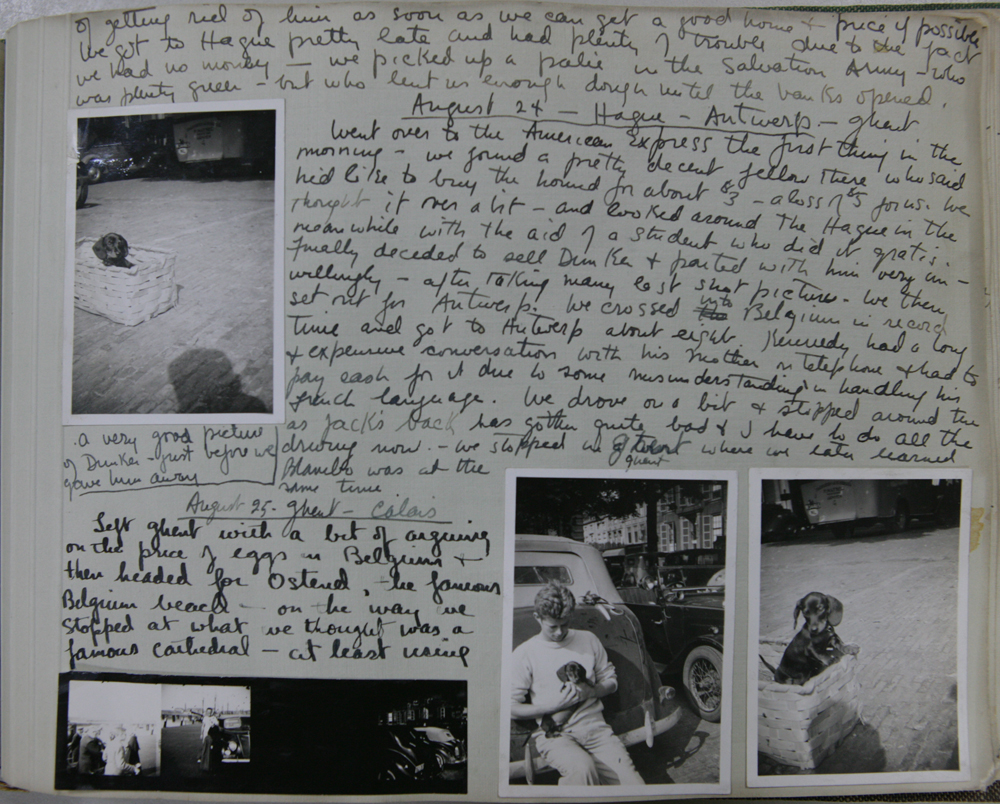 of getting rid of him as soon as we can get a good home + price if possible
We got to Hague pretty late and had plenty of trouble due to the fact
we had no money — we picked up a palie in the Salvation Army - who
was plenty queer - but who lent us enough dough until the banks opened.
August 24 — Hague - Antwerp - Ghent
Went over to the American Express the first thing in the
morning - we found a pretty decent fellow there who said
he'd like to buy the hound for about $3 - a loss of $5 for us. We
thought it over a bit - and looked around The Hague in the
meanwhile with the aid of a student who did it gratis.
Finally decided to sell Dunker + parted with him very un-
willingly - after taking many last shot pictures. We then
set out for Antwerp. We crossed into Belgium in record
time and got to Antwerp about eight. Kennedy had a long
+ expensive conversation with his mother on telephone + had to
pay cash for it due to some misunderstanding in handling his
french language. We drove on a bit + stopped around the
as Jack's back has gotten quite bad + I have to do all the
driving now. - we stopped in Ghent where we later learned
Ghent
Blambo was at the
same time
.a very good picture
of Dunker - just before we
gave him away
August 25. Ghent - Calais
Left Ghent with a bit of arguing
on the price of eggs in Belgium +
then headed for Ostend, the famous
Belgium beach - on the way we
stopped at what we thought was a
famous cathedral - at least using